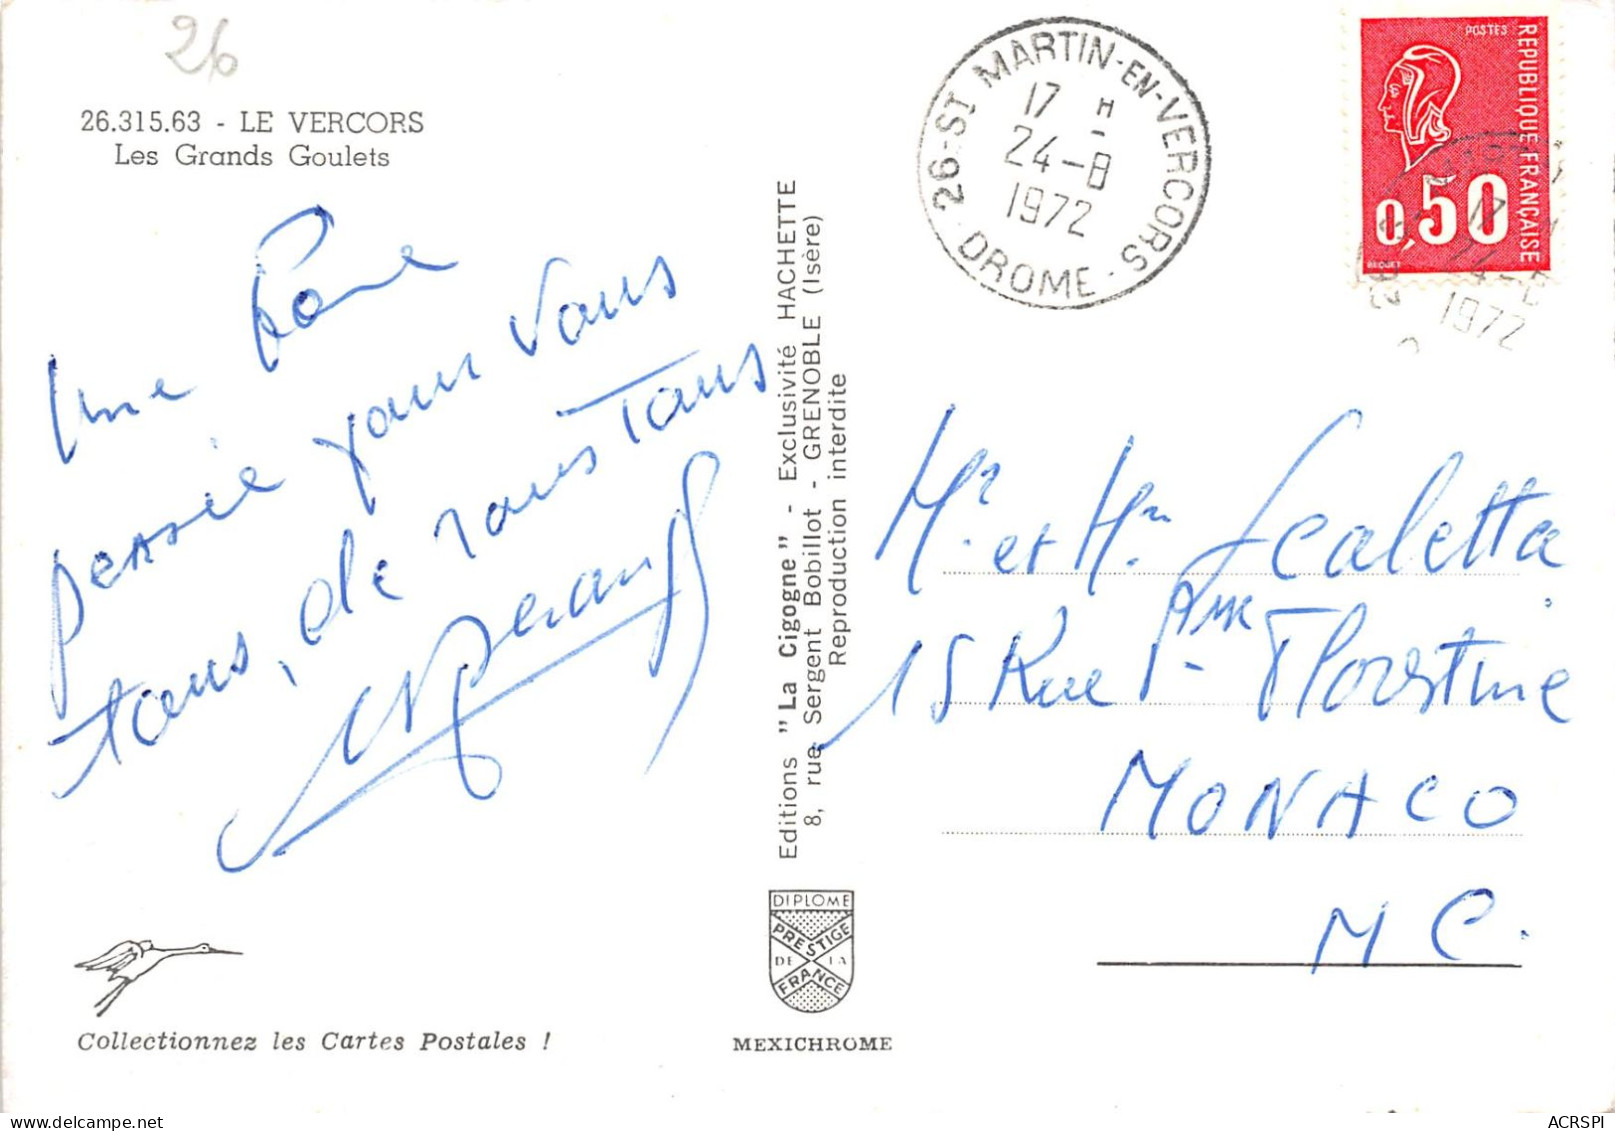 26
26.315.63 - LE VERCORS
Les Grands Goulets
Une bonne
pensée pour vous
tous, de nous tous
Editions "La Cigogne" - Exclusivité HACHETTE
8, rue Sergent Bobillot - GRENOBLE (Isère)
Reproduction interdite
26-ST MARTIN-EN-VERCORS
17 H
24-8
1972
DROME
POSTES
REPUBLIQUE FRANÇAISE
0,50
BEQUET
17 H
24-8
1972
Mr. et Mme Scaletta
15 Rue Psse Florestine
MONACO
M C.
DIPLOME
PRESTIGE
DE LA
FRANCE
Collectionnez les Cartes Postales !
MEXICHROME
ACRSPI